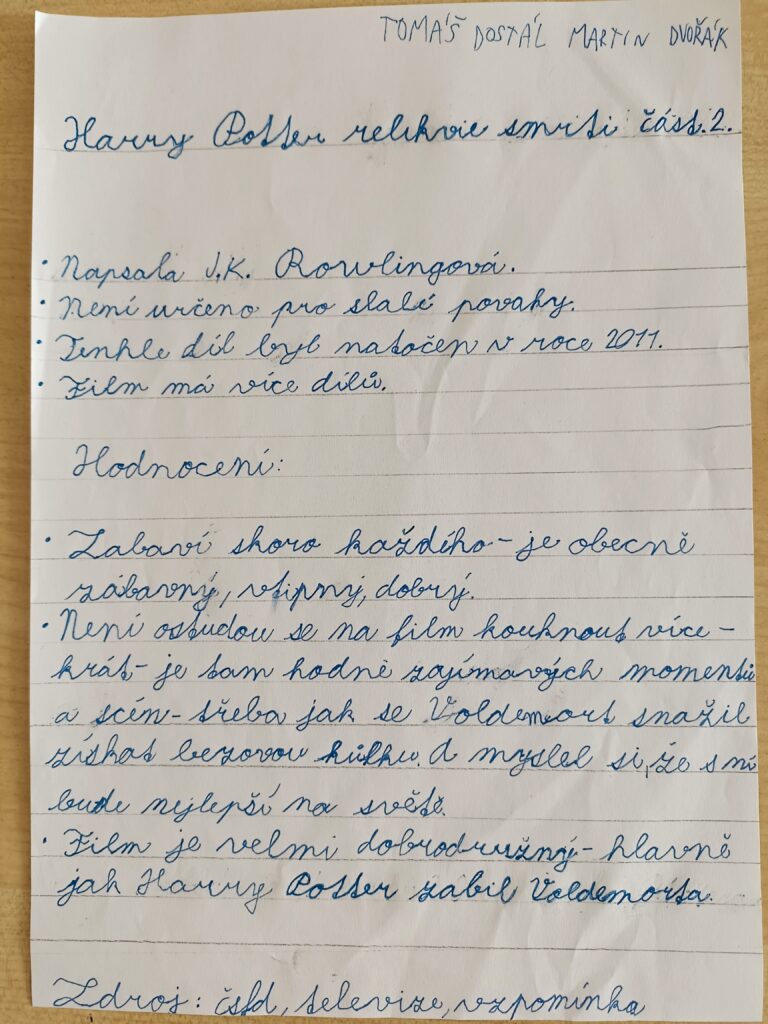 TOMÁŠ DOSTÁL MARTIN DVOŘÁK
Harry Potter relikvie smrti část.2.
• Napsala J.K. Rowlingová.
• Není určeno pro slabé povahy.
• Tenhle díl byl natočen v roce 2011.
• Film má více dílů.
Hodnocení:
• Zabaví skoro každého - je obecně
zábavný, vtipný, dobrý.
• Není ostudou se na film kouknout více-
krát - je tam hodně zajímavých momentů
a scén - třeba jak se Voldemort snažil
získat bezovou hůlku. A myslel si, že s ní
bude nejlepší na světě.
• Film je velmi dobrodružný - hlavně
jak Harry Potter zabil Voldemorta.
Zdroj: čsfd, televize, vzpomínka